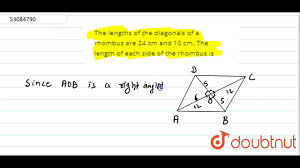 53084790
The lengths of the diagonals of a
rhombus are 24 cm and 10 cm. The
length of each side of the rhombus is
Since AOB is a right angled
D
C
5
12
O
12
5
A
B
doubtnut